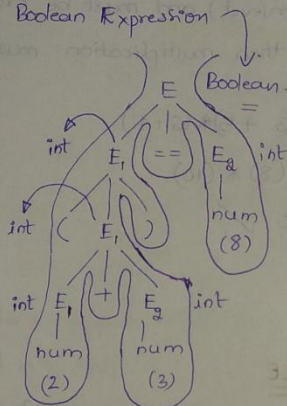 Boolean Expression
Boolean
=
E
int E₁ == E₂ int
num
(8)
int ( E₁ )
int E₁ + E₂ int
num num
(2) (3)